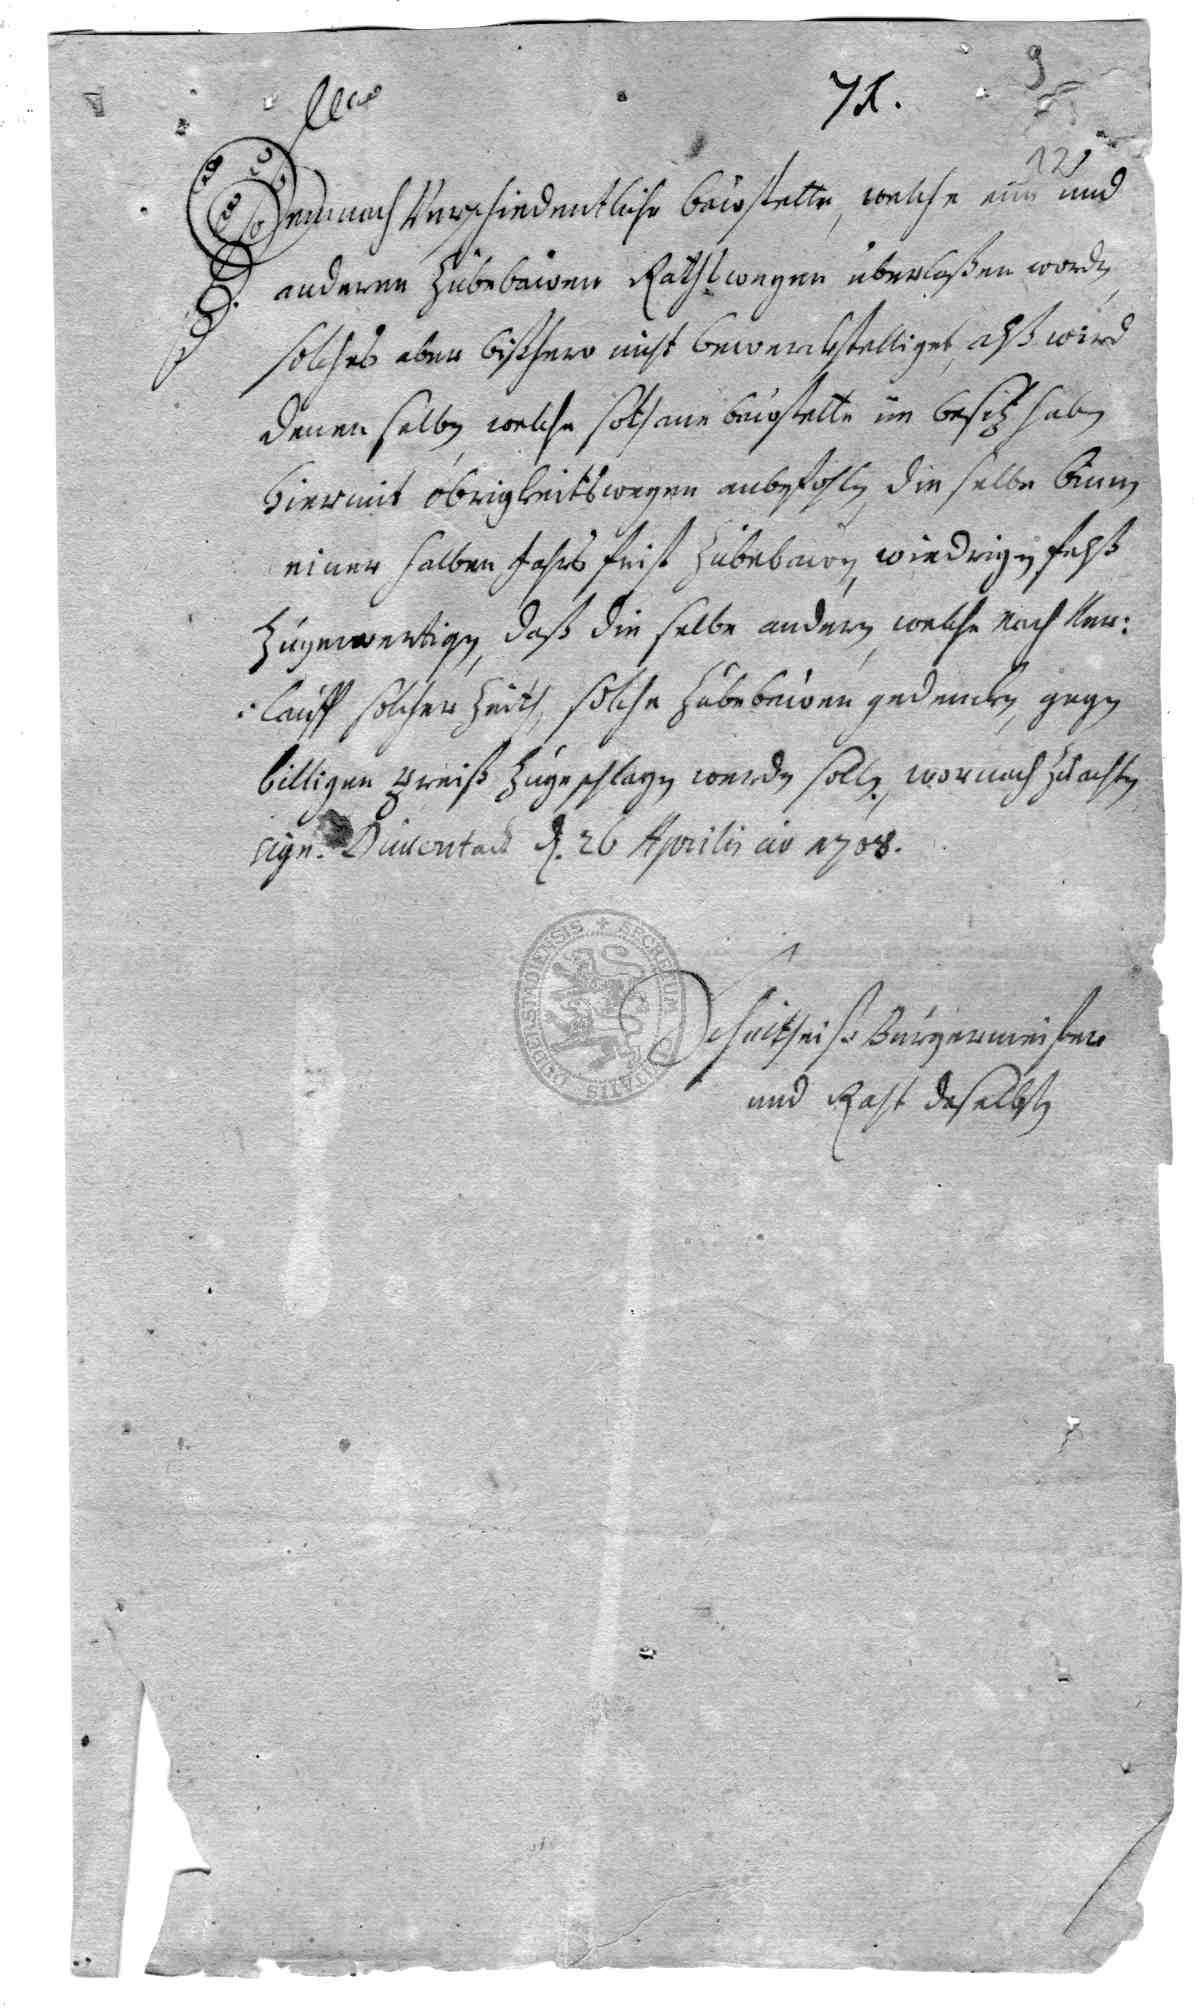 71.
9
121
Demnach Verschiedentliche bäwstette, welche ein und
anderen Zübebäwen Rathswegen überlaßen worden,
solches aber bißhero nicht bewerckstelliget, alß wird
denen selben, welche sothane bäwstette im besitz haben
hiermit obrigkeitswegen anbefohlen, die selbe binnen
einer halben Jahrs frist Zübebäwen, wiedrigen falß
Zügewertigen, daß die selbe andern, welche nach Ver:
:lauff solcher Zeit, solche Zübebäwen gedencken, gegen
billigen Preiß Zügeschlagen werden sollen, wornach Zü achten
sign. Düderstadt d. 26 Aprilis ao 1708.
SECRETUM CIVITATIS DUDERSTADIENSIS
Schultheiß Bürgermeister
und Raht daselbsten